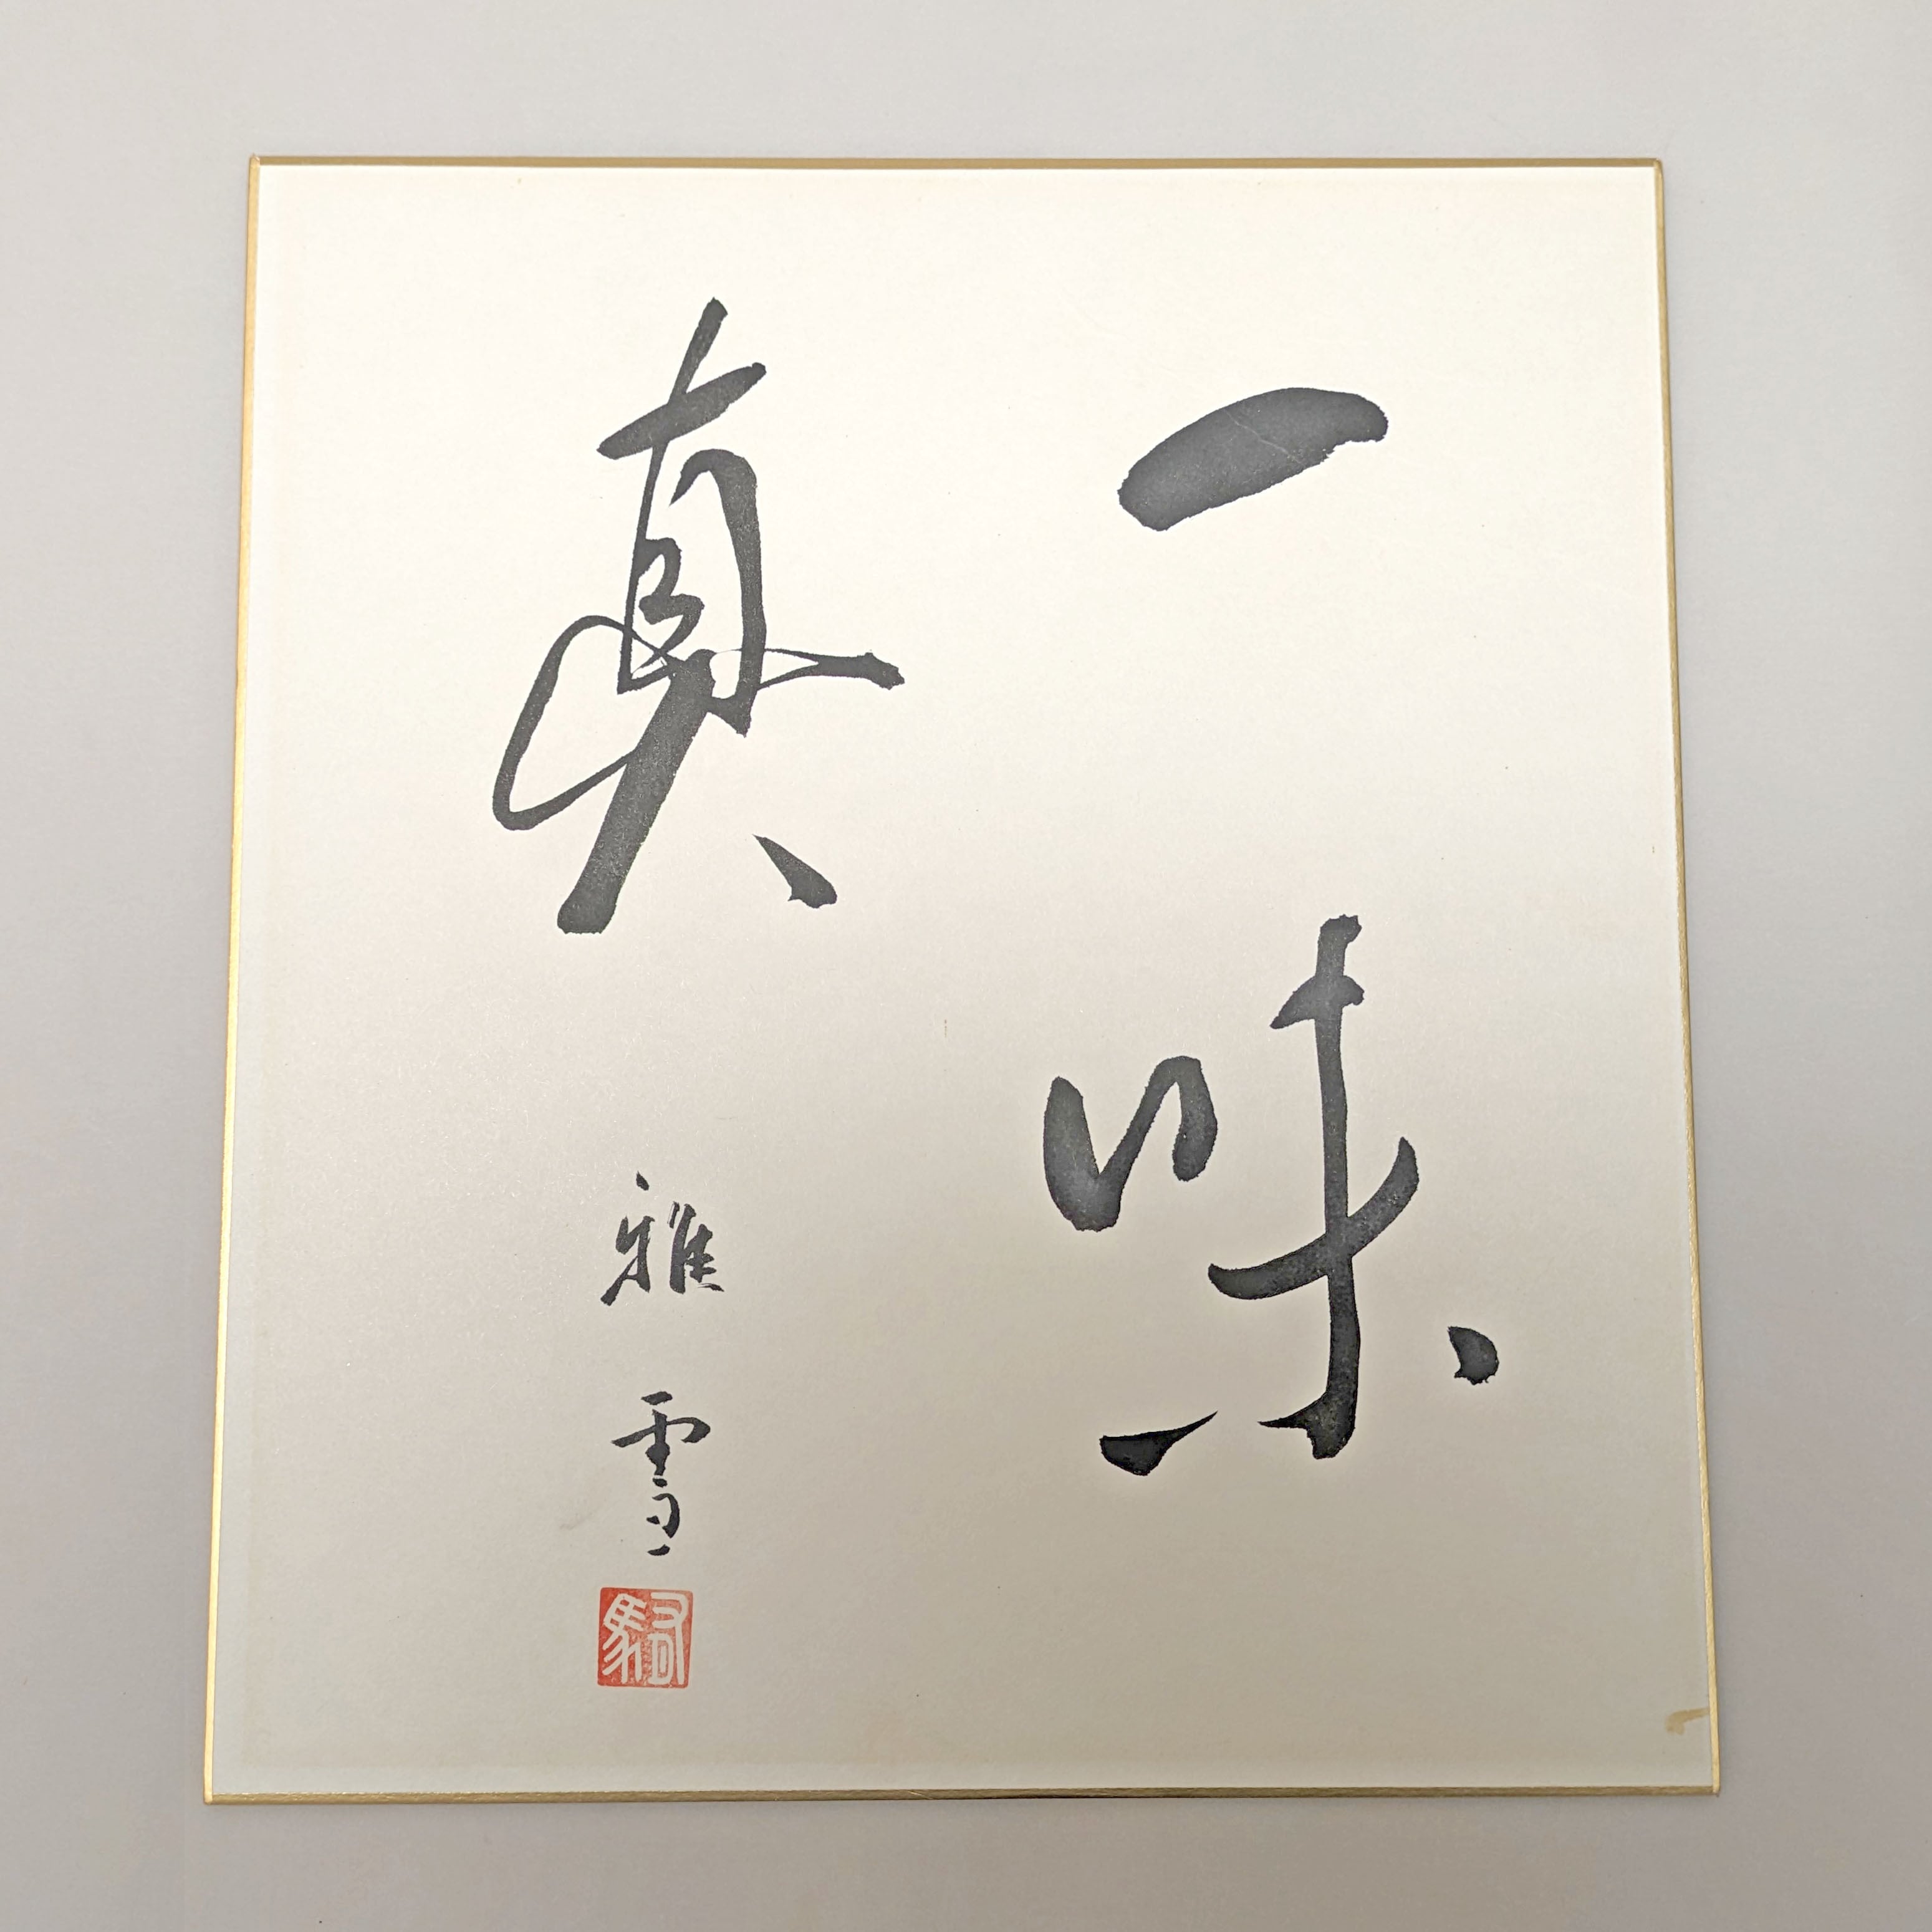 一味
真
雅雪